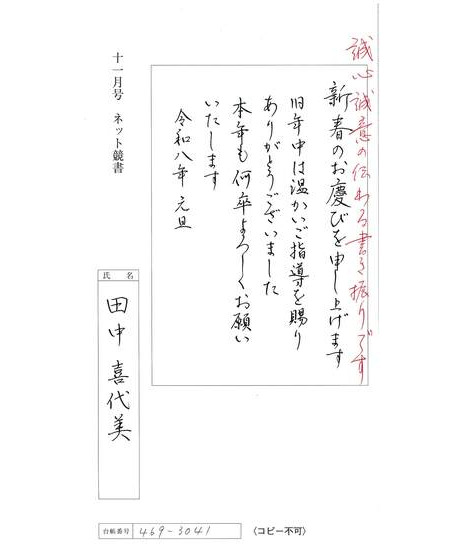 誠心誠意の伝わる書き振りです
新春のお慶びを申し上げます
旧年中は温かいご指導を賜り
ありがとうございました
本年も何卒よろしくお願い
いたします
令和八年 元旦
十一月号 ネット競書
氏名
田中 喜代美
台帳番号 469-3041
(コピー不可)